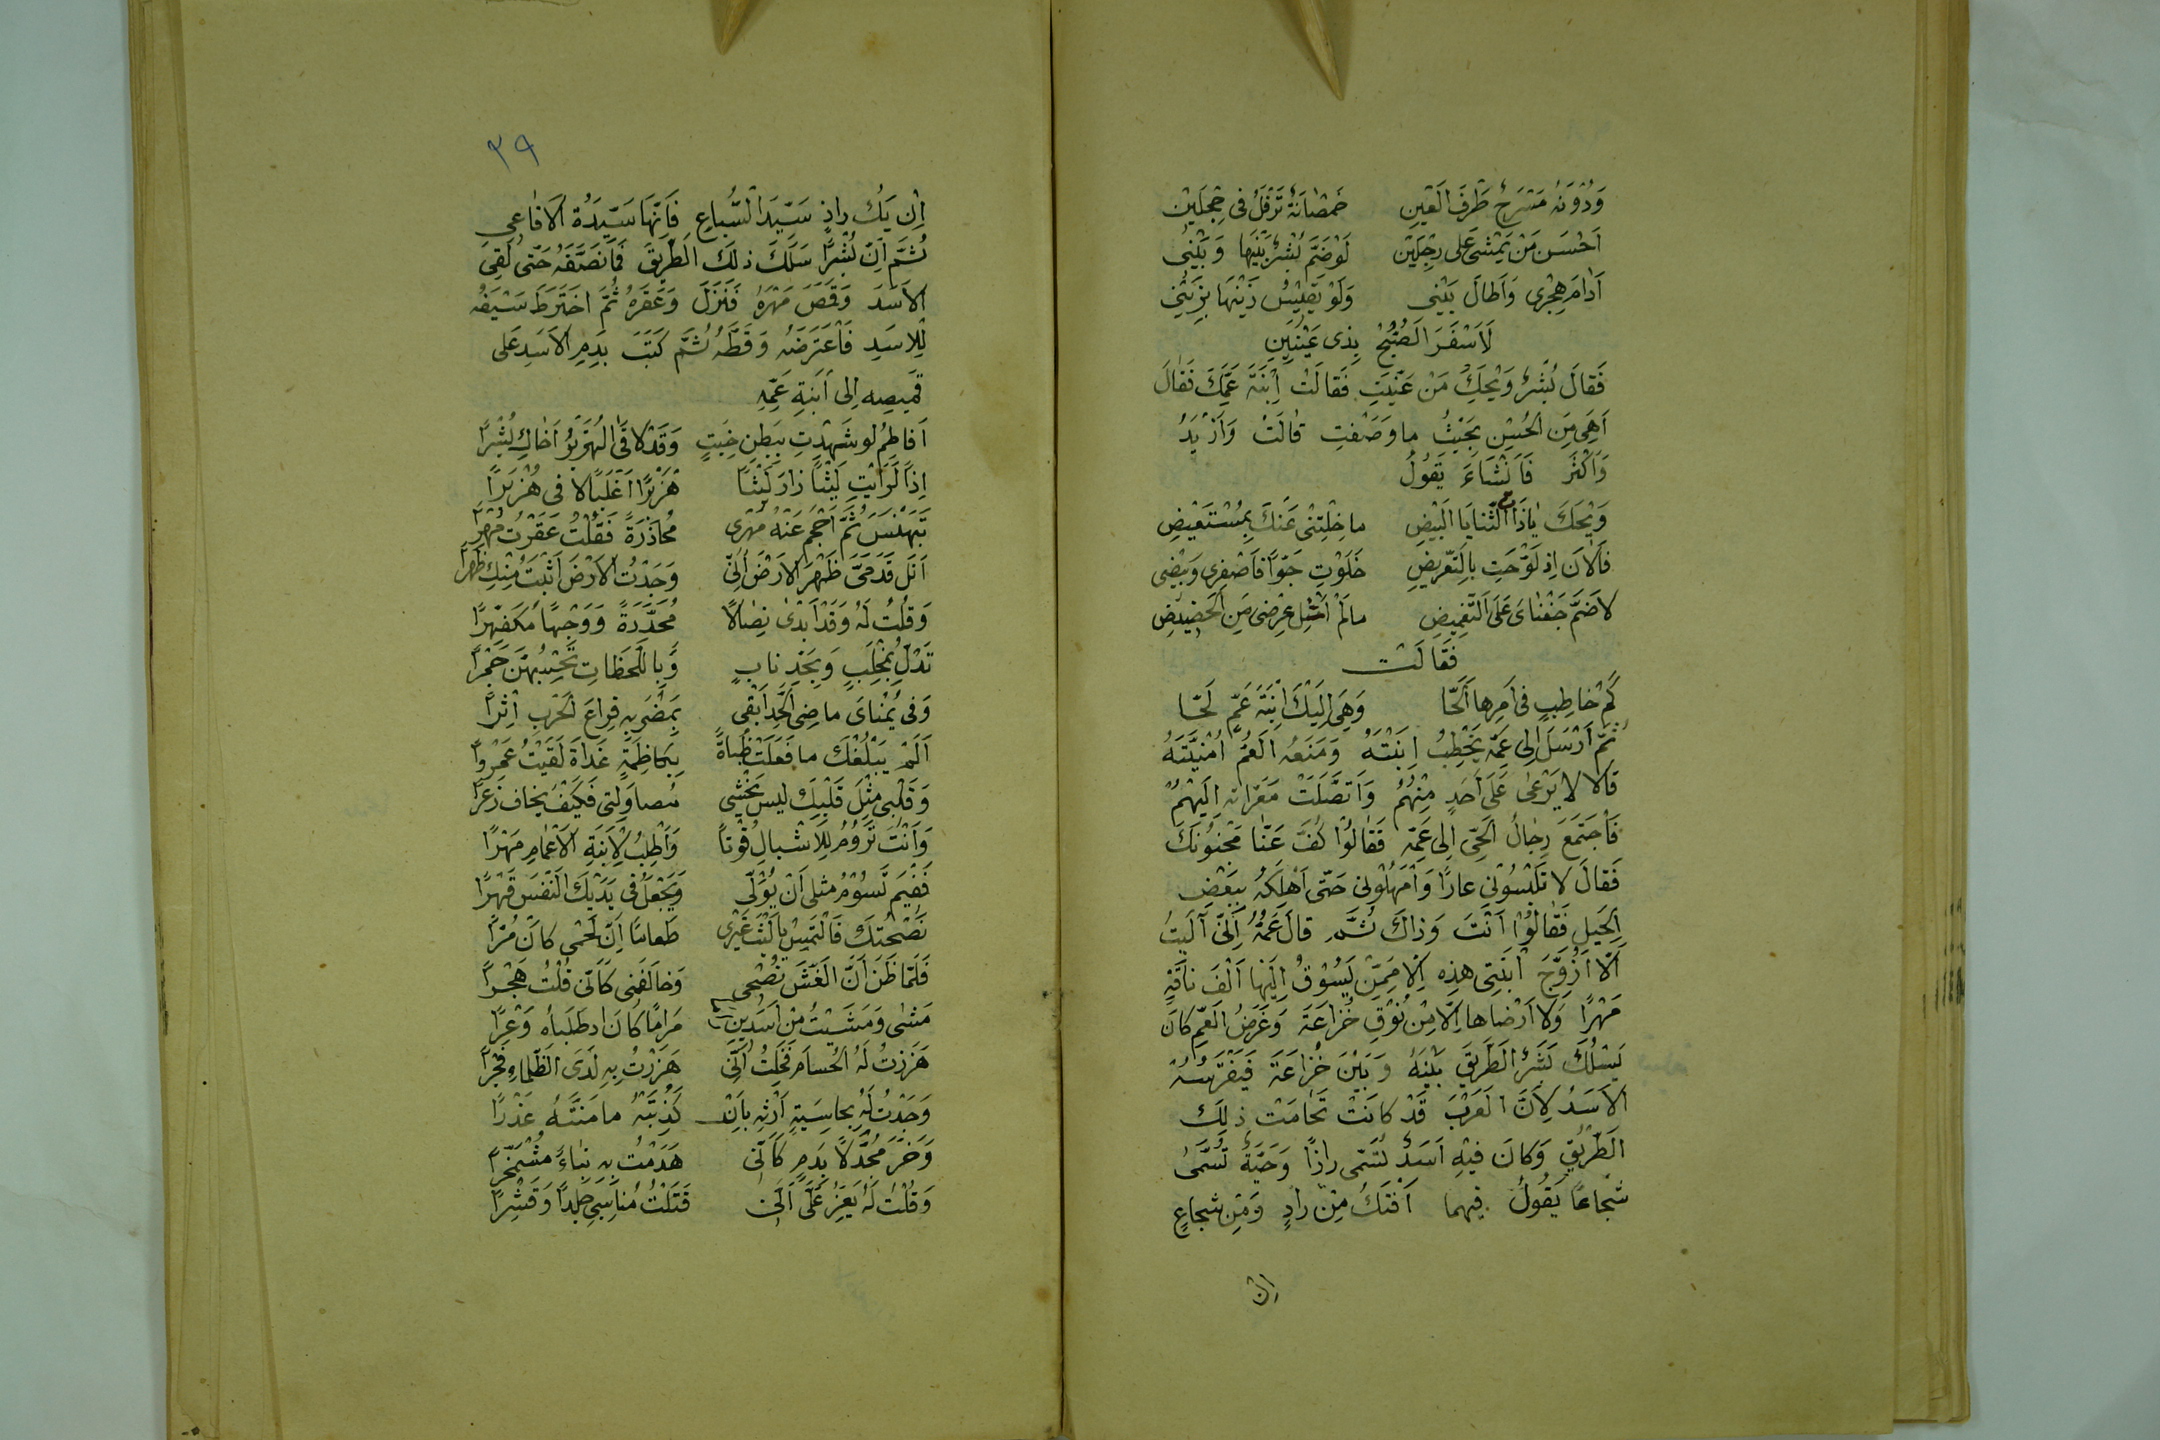 وَدُوْنَهُ مَسْرَحُ طَرْفِ الْعَيْنِ خَمْصَانَةٌ تَرْفُلُ فِى حِجْلَيْنِ
اَحْسَنُ مَنْ يَمْشِى عَلى رِجْلَيْنِ لَوْ ضَمَّ بُشْرٌ بَيْنَهَا وَبَيْنِى
اَدَامَ هِجْرِى وَاَطَالَ بَيْنِى وَلَوْ يَقِيْسُ زَيْنَهَا بِزَيْنِى
لَاَسْفَرَ الصُّبْحُ بِذِى عَيْنَيْنِ
فَقَالَ بُشْرٌ وَيْحَكِ مَنْ عَنَيْتِ فَقَالَتْ اِبْنَةَ عَمِّكَ فَقَالَ
اَهِىَ مِنَ الْحُسْنِ بِحَيْثُ مَا وَصَفْتِ قَالَتْ وَاَزْيَدُ
وَاَكْثَرَ فَاَنْشَاءَ يَقُولُ
وَيْحَكَ يَاذَا الثَّنَايَا الْبِيْضِ مَا خِلْتِنْى عَنْكَ بِمُسْتَعِيْضِ
فَالْاٰنَ اِذْ لَوَّحْتِ بِالتَّعْرِيْضِ خَلَوْتِ جَوًّا فَاصْفِرِى وَبِيْضِى
لَا ضَمَّ جَفْنَاىَ عَلَى التَّغْمِيْضِ مَا لَمْ اُشِلْ عِرْضِى مِنَ الْحَضِيْضِ
فَقَالَتْ
كَمْ خَاطِبٍ فِى اَمْرِهَا اَلَحَّا وَهِىَ اِلَيْكَ اِبْنَةُ عَمٍّ لَحَّا
ثُمَّ اَرْسَلَ اِلى عَمِّهِ يَخْطِبُ اِبْنَتَهُ وَمَنَعَهُ الْعَمُّ اُمْنِيَّتَهُ
فَآلَا لَا يَرْعٰى عَلَى اَحَدٍ مِنْهُمْ وَاتَّصَلَتْ مَعَرَّاتُهُ اِلَيْهِمْ
فَاجْتَمَعَ رِجَالُ الْحَىِّ اِلى عَمِّهِ فَقَالُوْا كُفَّ عَنَّا مَجْنُونَكَ
فَقَالَ لَا تَلْبِسُوْنِى عَارًا وَاَمْهِلُوْنِى حَتّٰى اَهْلِكَهُ بِبَعْضِ
الْحِيَلِ فَقَالُوْا اَنْتَ وَذَاكَ ثُمَّ قَالَ عَمُّهُ اِنِّى آلَيْتُ
اَلَّا اُزَوِّجَ ابْنَتِى هٰذِهِ اِلَّا مِمَّنْ يَسُوْقُ اِلَيْهَا اَلْفَ نَاقَةٍ
مَهْرًا وَلَا اَرْضَاهَا اِلَّا مِنْ نُوْقِ خُزَاعَةَ وَغَرَضُ الْعَمِّ كَانَ
يَسْلُكَ بُشَرُ الطَّرِيْقَ بَيْنَهُ وَبَيْنَ خُزَاعَةَ فَيَفْتَرِسُهُ
الْاَسَدُ لِاَنَّ الْعَرَبَ قَدْ كَانَتْ تَحَامَتْ ذٰلِكَ
الطَّرِيْقَ وَكَانَ فِيْهِ اَسَدٌ يُسَمّٰى رَاذًا وَحَيَّةٌ تُسَمّٰى
شُجَاعًا يَقُولُ فِيْهِمَا اَفْتَكُ مِنْ رَاذٍ وَمِنْ شُجَاعٍ
اِنْ
٣٩
اِنْ يَكُ رَاذٍ سَيِّدَ السِّبَاعِ فَاِنَّهَا سَيِّدَةُ الْاَفَاعِى
ثُمَّ اِنَّ بُشْرًا سَلَكَ ذٰلِكَ الطَّرِيْقَ فَمَا نَصَّفَهُ حَتّٰى لَقِىَ
الْاَسَدَ وَقَمَصَ مَهْرُهُ فَنَزَلَ وَعَقَرَهُ ثُمَّ اخْتَرَطَ سَيْفَهُ
لِلْاَسَدِ فَاعْتَرَضَهُ وَقَطَّهُ ثُمَّ كَتَبَ بِدَمِ الْاَسَدِ عَلى
قَمِيْصِهِ اِلى اَبْنَةِ عَمِّهِ
اَفَاطِمُ لَوْ شَهِدْتِ بِبَطْنِ خَبْتٍ وَقَدْ لَاقَى الْهِزَبْرُ اَخَاكِ بُشْرًا
اِذًا لَرَاَيْتِ لَيْثًا زَارَ لَيْثًا هِزَبْرًا اَغْلَبًا لَاقَى هِزَبْرًا
تَبَهْنَسَ ثُمَّ اَحْجَمَ عَنْهُ مُهْرِى مُحَاذَرَةً فَقُلْتُ عُقِرْتَ مُهْرًا
اَنِلْ قَدَمَىَّ ظَهْرَ الْاَرْضِ اِنِّى وَجَدْتُ الْاَرْضَ اَثْبَتَ مِنْكَ ظَهْرًا
وَقُلْتُ لَهُ وَقَدْ اَبْدٰى نِصَالًا مُحَدَّدَةً وَوَجْهًا مُكْفَهِرًّا
تَدُلُّ بِمِخْلَبٍ وَبِحَدِّ نَابٍ وَبِاللَّحَظَاتِ تَحْسِبُهُنَّ جَمْرًا
وَفِى يُمْنَاىَ مَاضِى الْحَدِّ اَبْقٰى بِمَضْرَبِهِ قِرَاعُ الْحَرْبِ اِثْرًا
اَلَمْ يَبْلُغْكَ مَا فَعَلَتْ ظُبَاةٌ بِكَاظِمَةٍ غَدَاةَ لَقِيْتُ عَمْرًوا
وَقَلْبِى مِثْلُ قَلْبِكَ لَيْسَ يَخْشٰى مُصَاوَلَتِى فَكَيْفَ يَخَافُ ذَعْرًا
وَاَنْتَ تَرُوْمُ لِلْاَشْبَالِ قُوْتًا وَاَطْلِبُ لِاِبْنَةِ الْاَعْمَامِ مَهْرًا
فَفِيْمَ تَسُوْمُ مِثْلِى اَنْ يُوَلِّى وَيَجْعَلَ فِى يَدَيْكَ النَّفْسَ قَهْرًا
نَصَحْتُكَ فَالْتَمِسْ يَا لَيْثُ غَيْرِى طَعَامًا اِنَّ لَحْمِى كَانَ مُرًّا
فَلَمَّا ظَنَّ اَنَّ الْغَشَّ نُصْحِى وَخَالَفَنِى كَاَنِّى قُلْتُ هَجْرًا
مَشٰى وَمَشَيْتُ مِنْ اَسَدَيْنِ مَرَامًا كَانَ اِذْ طَلَبَاهُ وَعْرًا
هَزَزْتُ لَهُ الْحُسَامَ فَخِلْتُ اَنِّى هَزَزْتُ بِهِ لَدَى الظَّلْمَاءِ فَجْرًا
وَجَدْتُ لَهُ بِجَاسِيَةٍ اَرَتْهُ بِاَنْ كَذَبَتْهُ مَا مَنَّتْهُ غَدْرًا
وَخَرَّ مُجَدَّلًا بِدَمٍ كَاَنِّى هَدَمْتُ بِهِ بِنَاءً مُشْمَخِرًّا
وَقُلْتُ لَهُ يَعِزُّ عَلَىَّ اَنِّى قَتَلْتُ مُنَاسِبِى جَلَدًا وَقَسْرًا